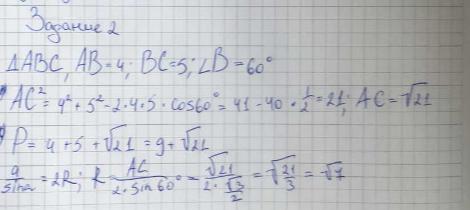 Задание 2
ΔABC, AB=4; BC=5; ∠B=60°
AC² = 4² + 5² - 2·4·5·cos60° = 41 - 40 · 1/2 = 21; AC = √21
P = 4 + 5 + √21 = 9 + √21
a/sinα = 2R; R = AC/(2·sin60°) = √21/(2·√3/2) = √(21/3) = √7